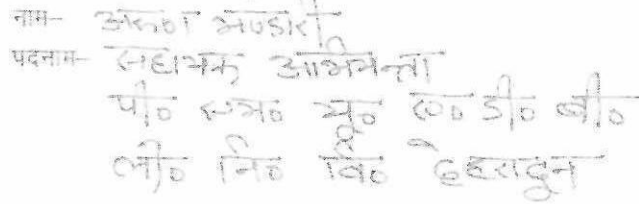 नाम- अरूणा भण्डारी
पदनाम- सहायक अभियन्ता
पी० एम० यू० ए० डी० बी०
लो० नि० वि० देहरादून